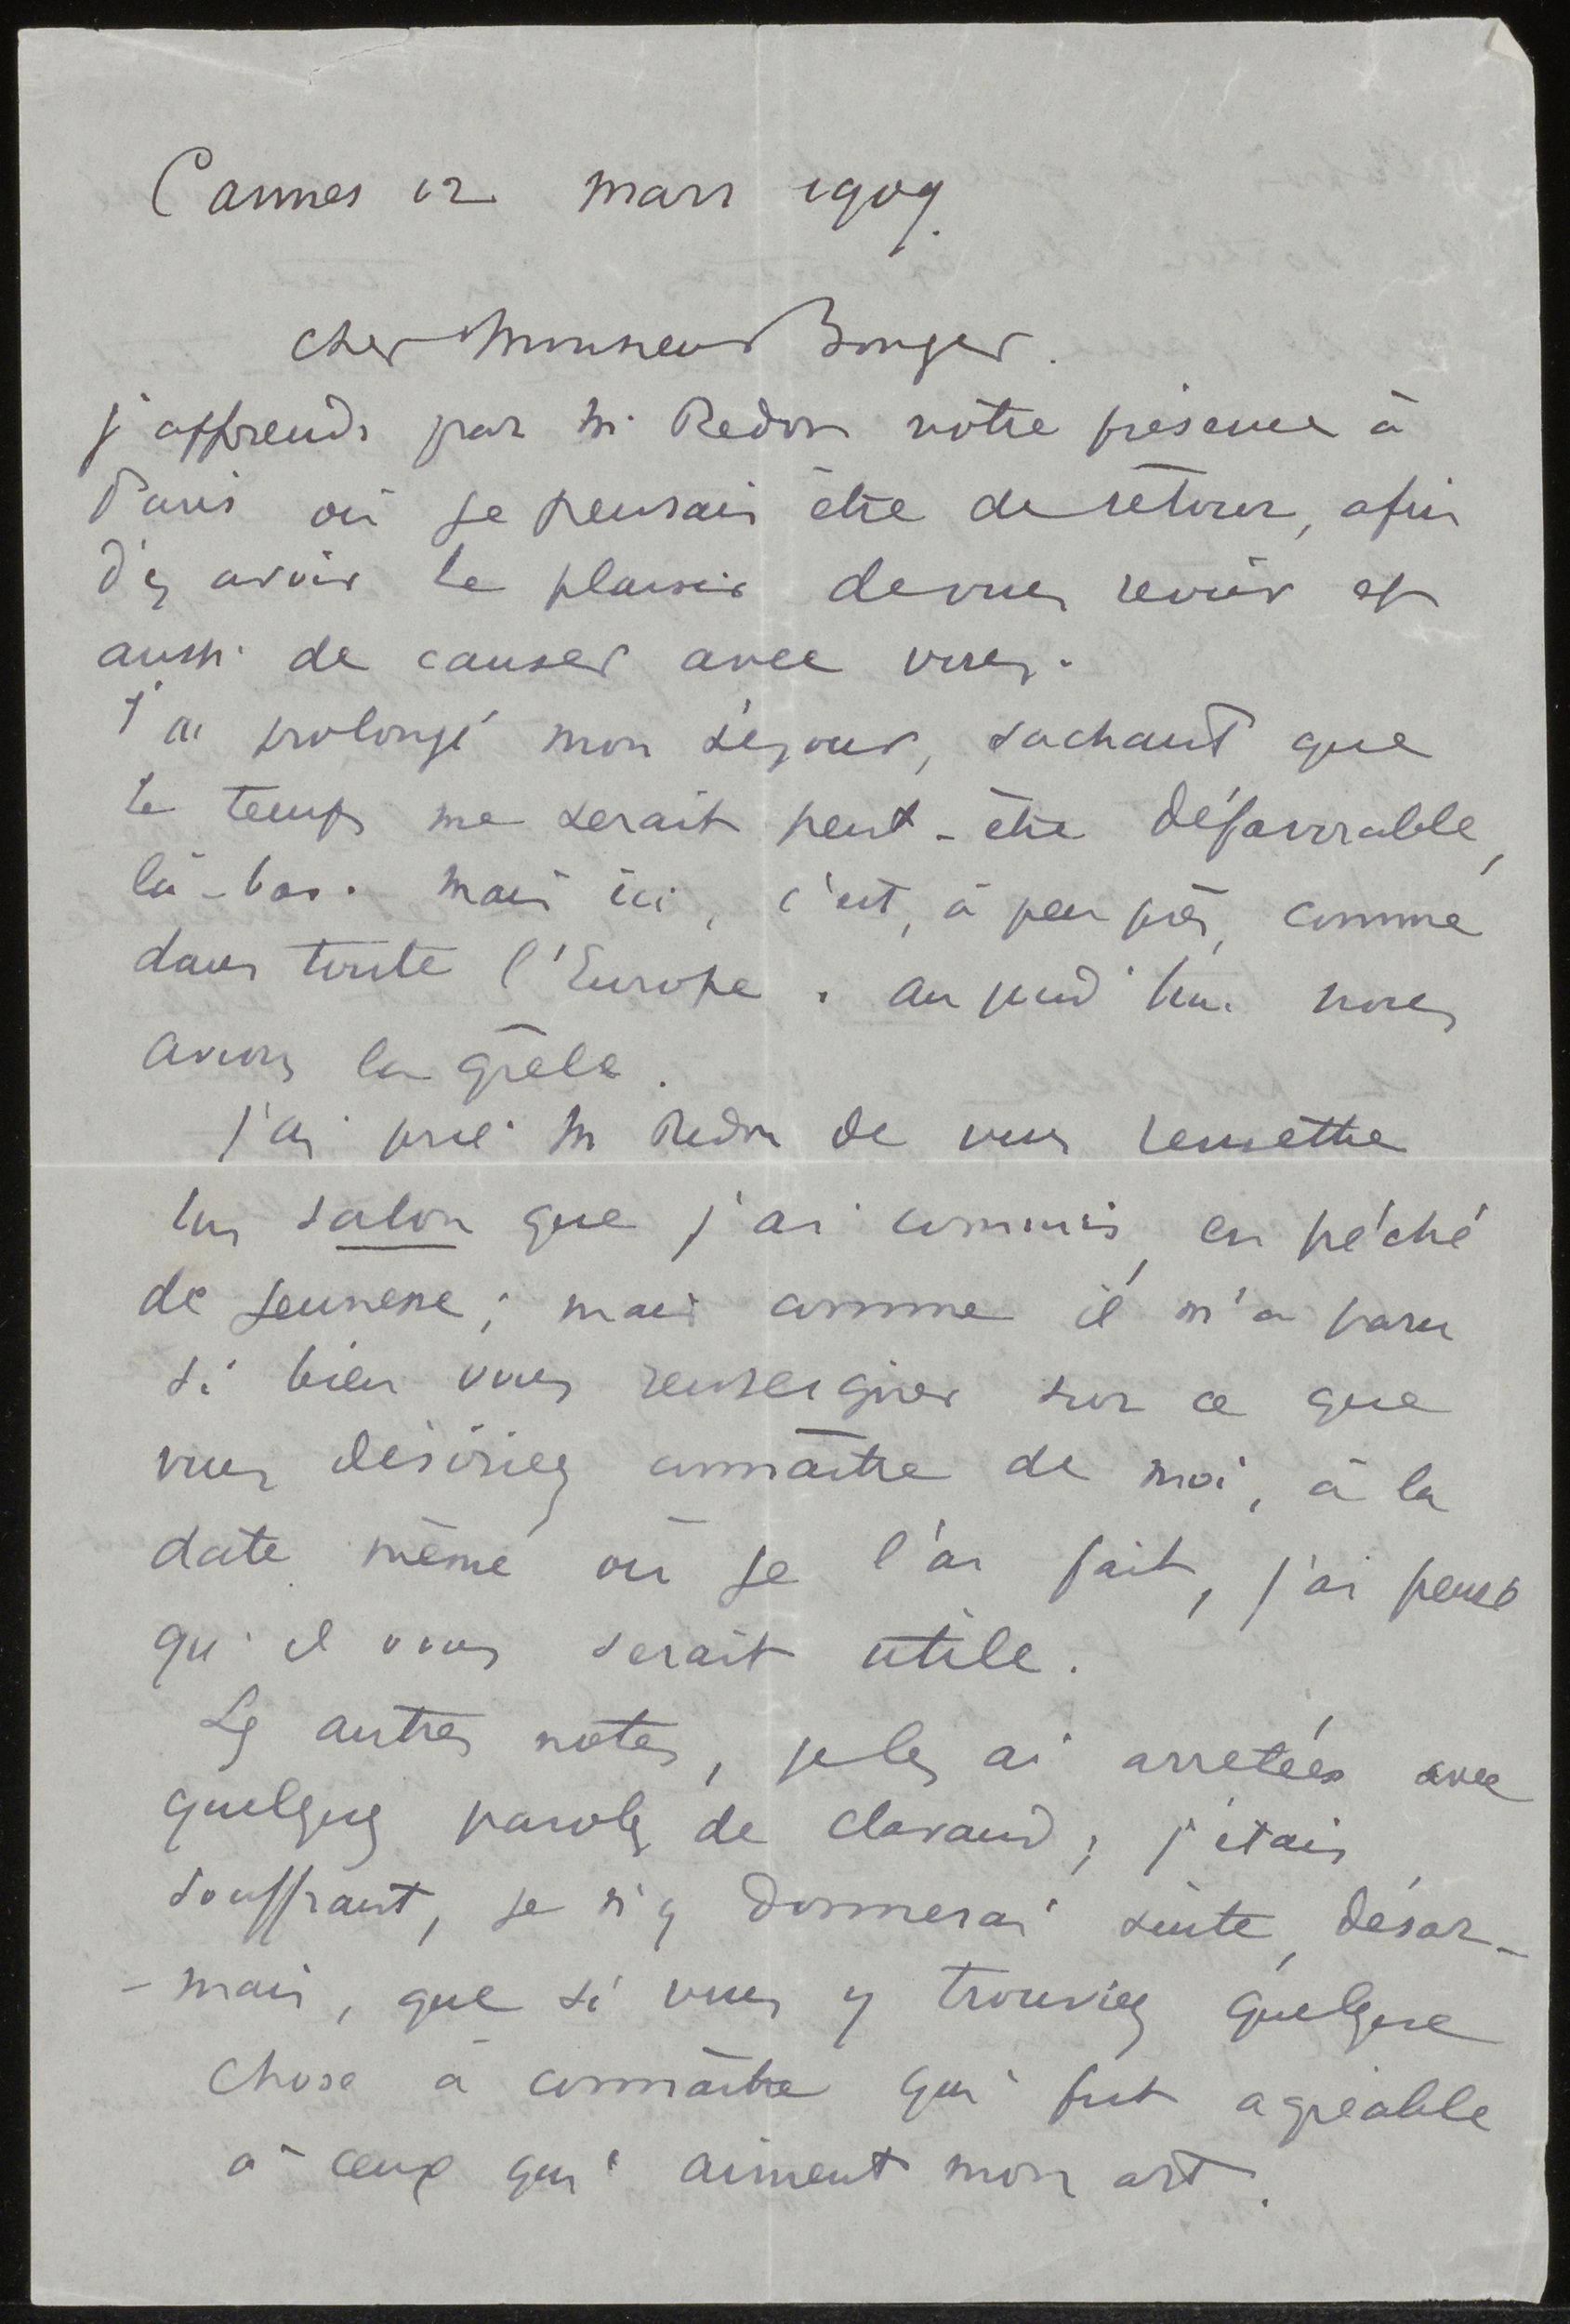 Cannes 12 mars 1909.
cher Monsieur Bonger.
j'apprends par M. Redon votre présence à
Paris où je pensais être de retour, afin
d'y avoir le plaisir de vous revoir et
aussi de causer avec vous.
J'ai prolongé mon séjour, sachant que
le temps me serait peut-être défavorable,
là-bas. mais ici, c'est, à peu près, comme
dans toute l'Europe. aujourd'hui nous
avons la grêle.
J'ai prié M Redon de vous remettre
un salon que j'ai commis, en péché
de jeunesse; mais comme il m'a paru
si bien vous renseigner sur ce que
vous désiriez connaître de moi, à la
date même où je l'ai fait, j'ai pensé
qu'il vous serait utile.
Les autres notes, je les ai arretées avec
quelques paroles de Clavaud; j'étais
souffrant, je n'y donnerai suite, désor-
-mais, que si vous y trouviez quelque
chose à connaître qui fut agréable
à ceux qui aiment mon art.